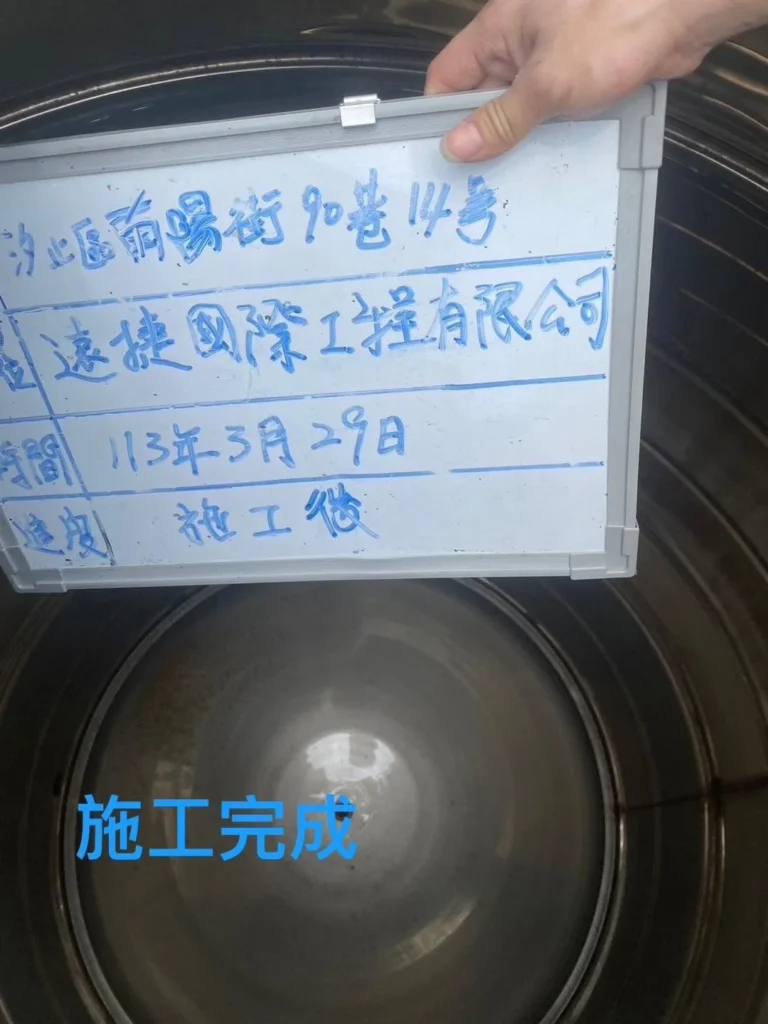 汐止區南陽街90巷14号
遠捷國際工程有限公司
時間 113年3月29日
進度 施工後
施工完成